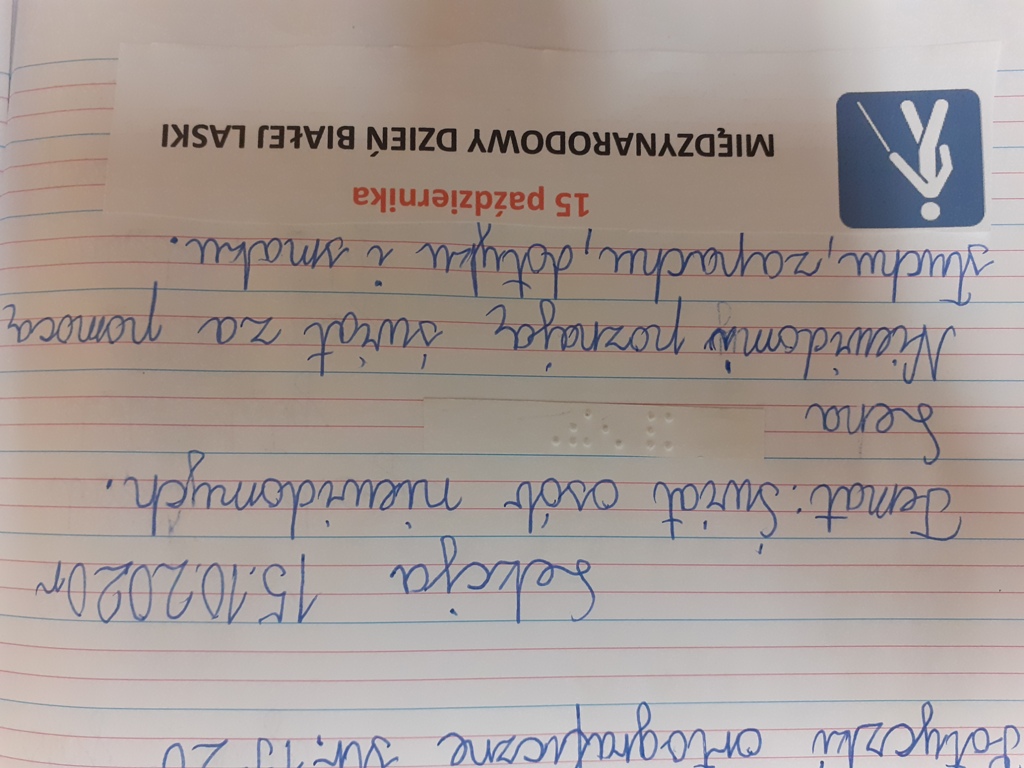 ortograficzne str. 19 20
Lekcja 15.10.2020r
Temat: Świat osób niewidomych.
Lena
Niewidomi poznają świat za pomocą
słuchu, zapachu, dotyku i smaku.
15 października
MIĘDZYNARODOWY DZIEŃ BIAŁEJ LASKI